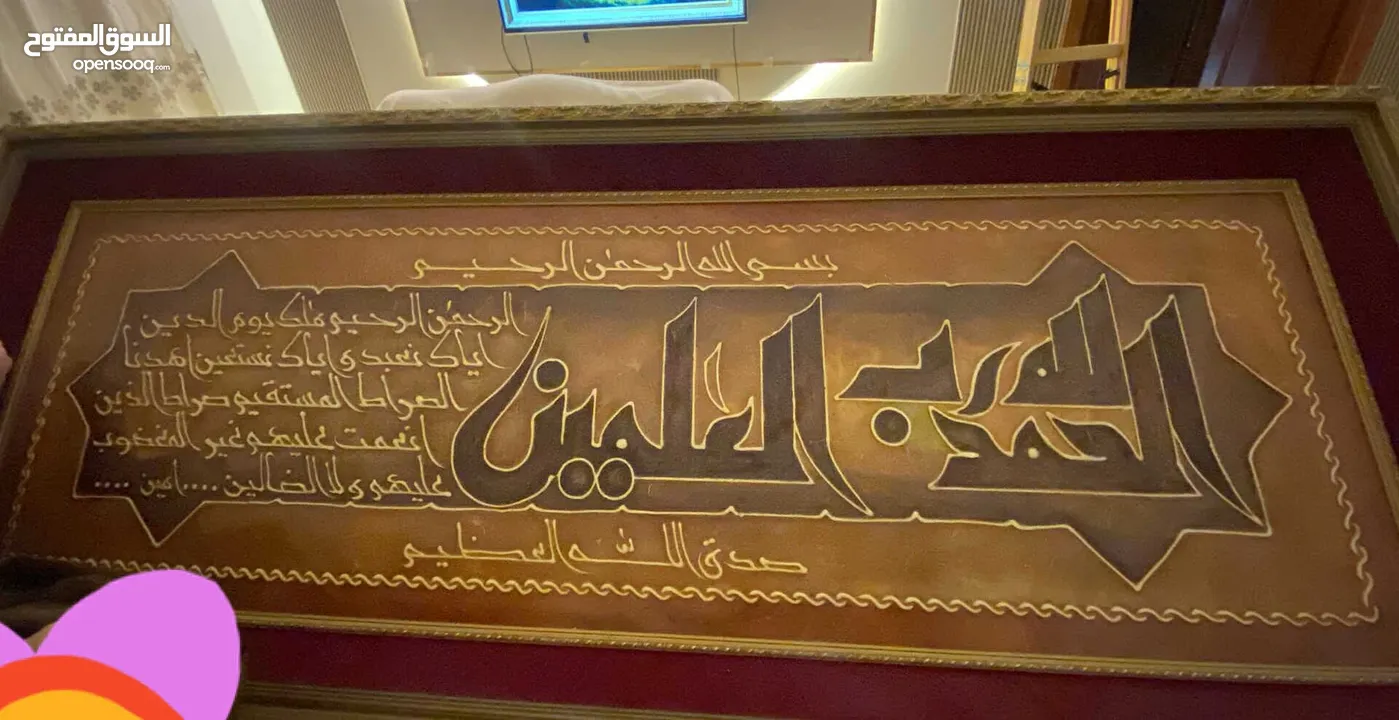 السوق المفتوح
opensooq.com
بسم الله الرحمٰن الرحيم
الحمد لله رب
العلمين
الرحمٰن الرحيم مٰلك يوم الدين
اياك نعبد و اياك نستعين اهدنا
الصراط المستقيم صراط الذين
انعمت عليهم غير المغضوب
عليهم و لا الضالين .... امين ....
صدق اللّٰه العظيم